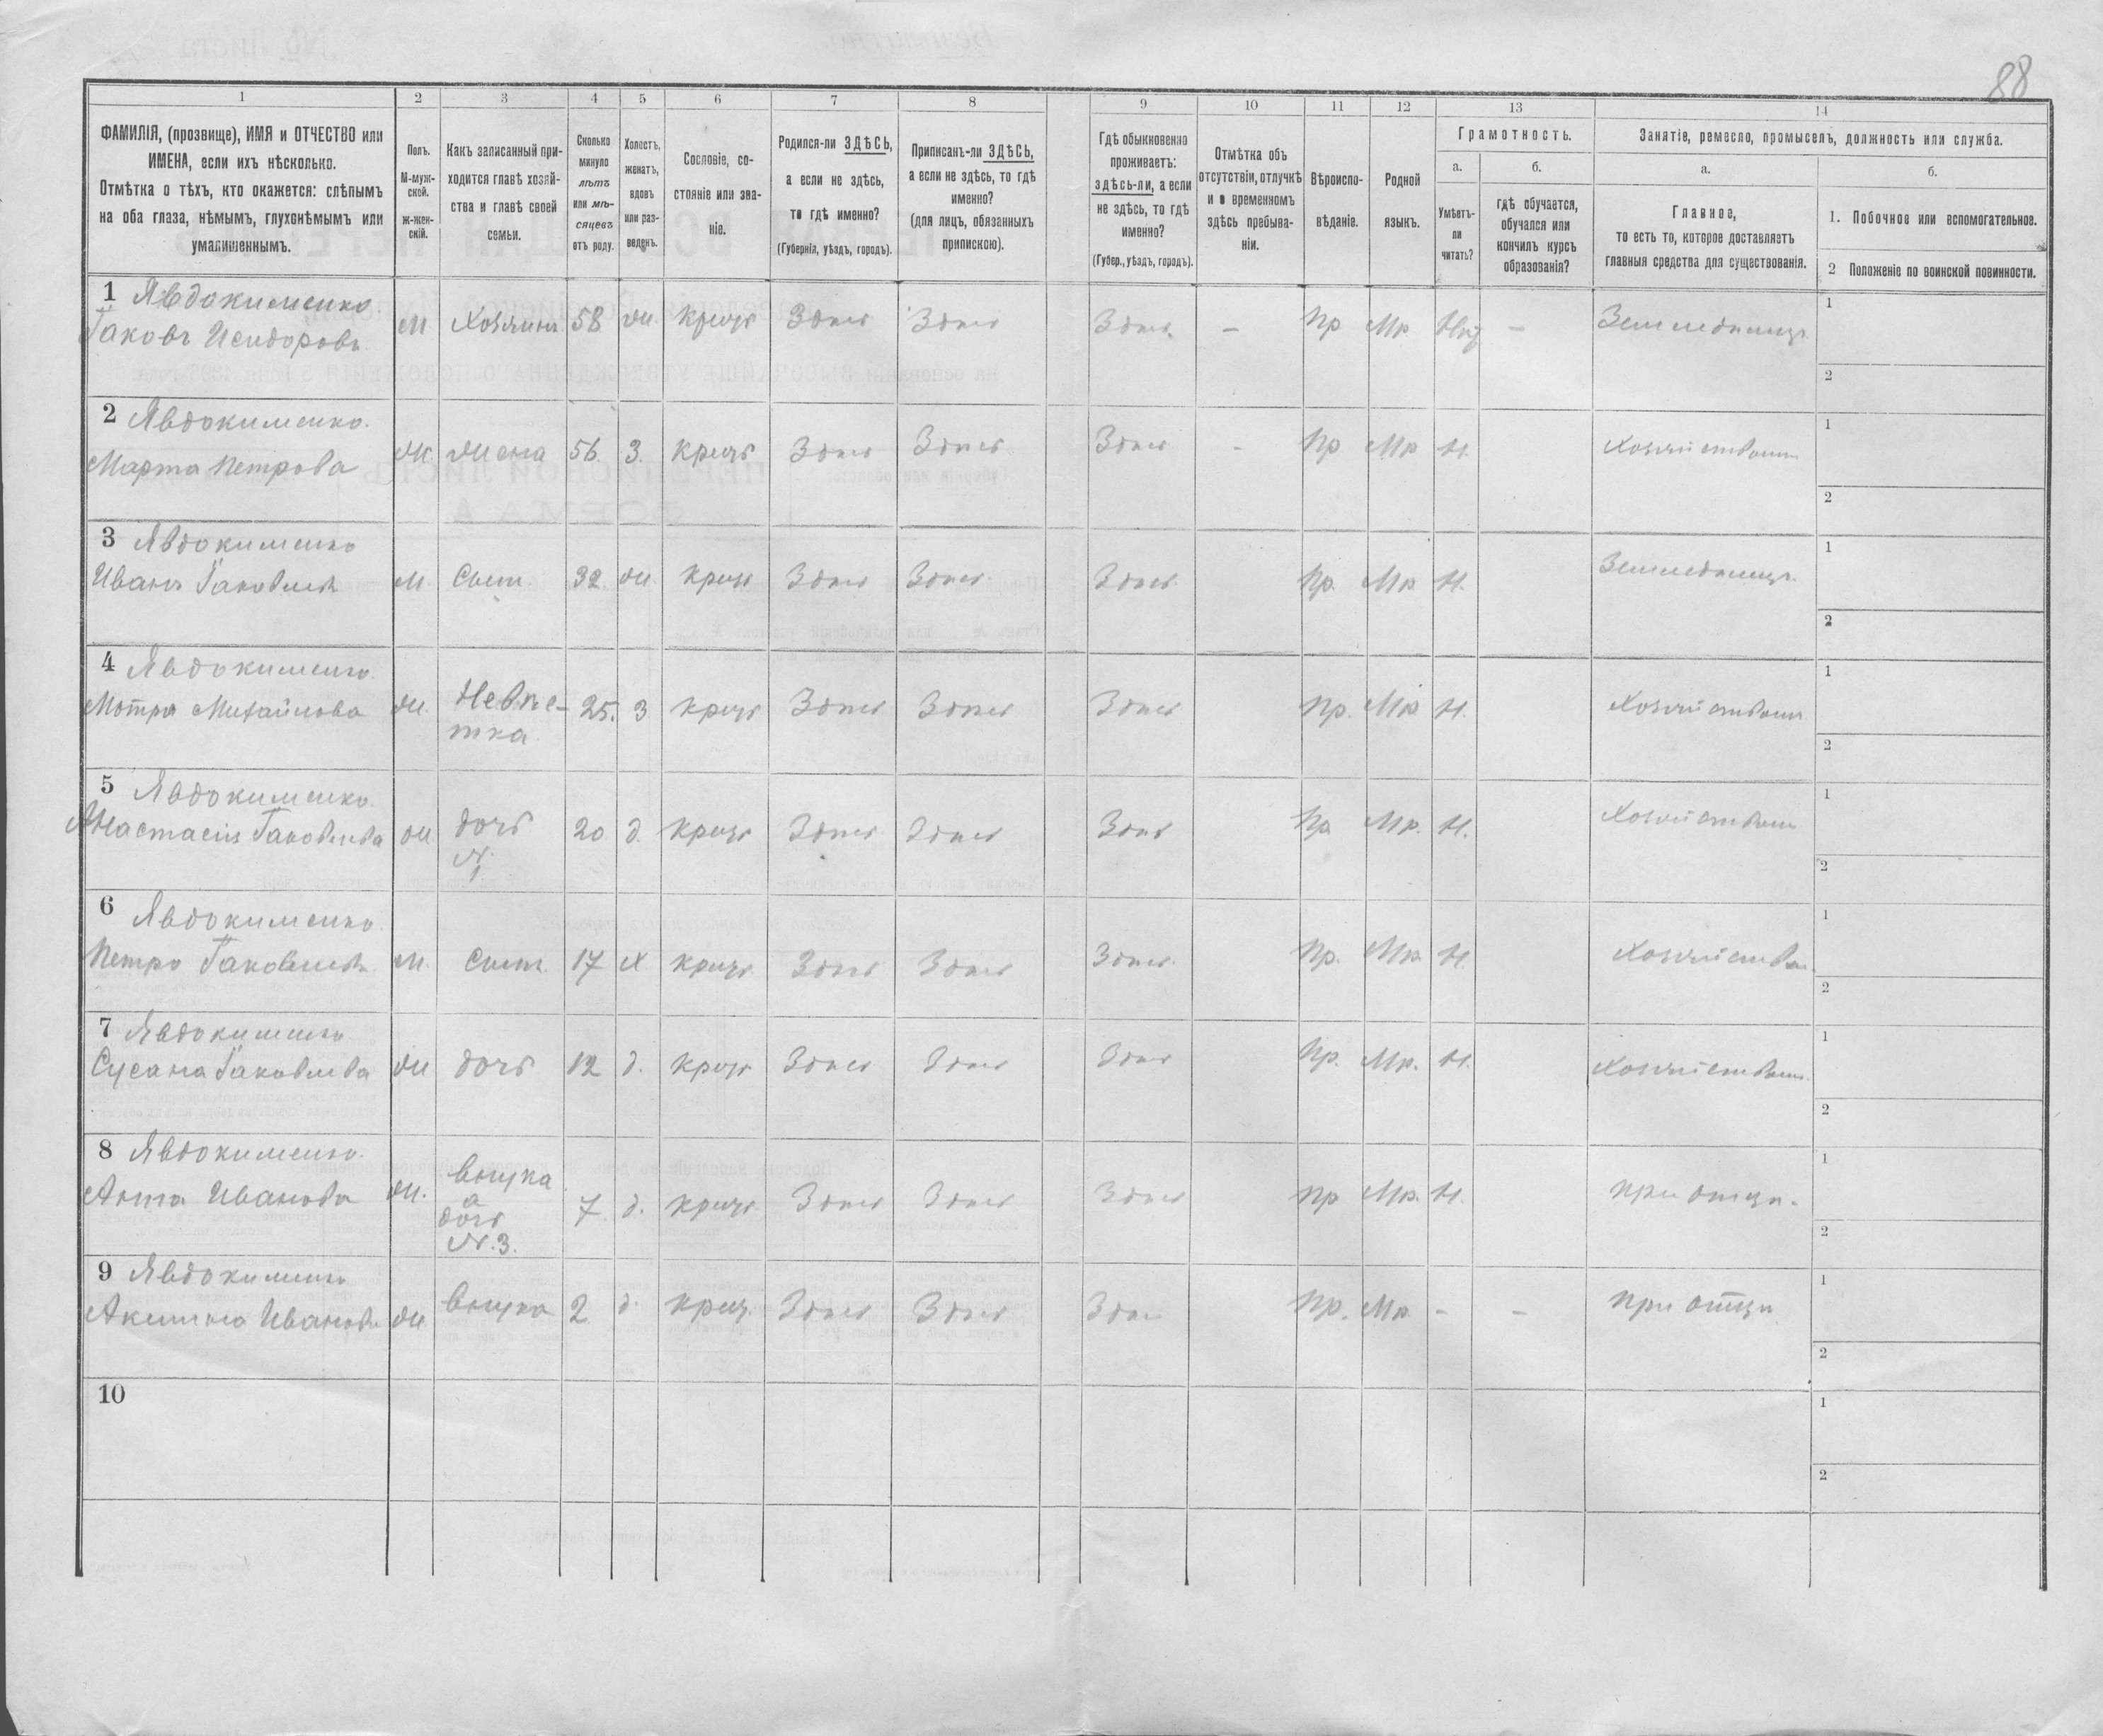 88
1 2 3 4 5 6 7 8 9 10 11 12 13 14
ФАМИЛІЯ, (прозвище), ИМЯ и ОТЧЕСТВО или
ИМЕНА, если ихъ нѣсколько.
Отмѣтка о тѣхъ, кто окажется: слѣпымъ
на оба глаза, нѣмымъ, глухонѣмымъ или
умалишеннымъ.
Полъ.
М-муж-
ской.
ж-жен-
скій.
Какъ записанный при-
ходится главѣ хозяй-
ства и главѣ своей
семьи.
Сколько
минуло
лѣтъ
или мѣ-
сяцевъ
отъ роду.
Холостъ,
женатъ,
вдовъ
или раз-
веденъ.
Сословіе, со-
стояніе или зва-
ніе.
Родился-ли ЗДѢСЬ,
а если не здѣсь,
то гдѣ именно?
(Губернія, уѣздъ, городъ).
Приписанъ-ли ЗДѢСЬ,
а если не здѣсь, то гдѣ
именно?
(для лицъ, обязанныхъ
припискою).
Гдѣ обыкновенно
проживаетъ:
здѣсь-ли, а если
не здѣсь, то гдѣ
именно?
(Губер., уѣздъ, городъ).
Отмѣтка объ
отсутствіи, отлучкѣ
и о временномъ
здѣсь пребыва-
ніи.
Вѣроиспо-
вѣданіе.
Родной
языкъ.
Грамотность.
а.
Умѣетъ-
ли
читать?
б.
гдѣ обучается,
обучался или
кончилъ курсъ
образованія?
Занятіе, ремесло, промыселъ, должность или служба.
а.
Главное,
то есть то, которое доставляетъ
главныя средства для существованія.
б.
1. Побочное или вспомогательное.
2 Положеніе по воинской повинности.
1 Явдокименко
Іаковъ Исидоровъ М Хозяинъ 58 ж. крест Здѣсь Здѣсь Здѣсь - пр Мр. - Земледѣлецъ 1
2
2 Явдокименко.
Марта Петрова ж жена 56. З. крест Здѣсь Здѣсь Здѣсь - пр Мр Н. 1
2
3 Явдокименко
Иванъ Іаковлевъ М. Сынъ. 32. ж. крест Здѣсь Здѣсь. Здѣсь. пр. Мр. Н. Земледѣлецъ. 1
2
4 Явдокименко.
Мотря Михайлова ж. Невѣс-
тка. 25. З крест Здѣсь Здѣсь Здѣсь пр. Мр Н. 1
2
5 Явдокименко.
Анастасія Іаковлева ж дочь
№
1. 20 д. крест Здѣсь Здѣсь Здѣсь пр Мр. Н. 1
2
6 Явдокименко.
Петро Іаковлевъ. М. Сынъ. 17 х крест Здѣсь Здѣсь Здѣсь. пр. Мр. Н. 1
2
7 Явдокименко
Сусана Іаковлева ж дочь 12 д. крест Здѣсь Здѣсь Здѣсь пр. Мр. Н. 1
2
8 Явдокименко.
Анна Иванова ж. внучка
а
дочь
№.3. 7. д. крест. Здѣсь Здѣсь Здѣсь пр Мр. Н. при отцѣ. 1
2
9 Явдокименко
Акилина Иванова ж внучка 2 д. крест. Здѣсь Здѣсь Здѣсь пр. Мр. - - при отцѣ 1
2
10 1
2